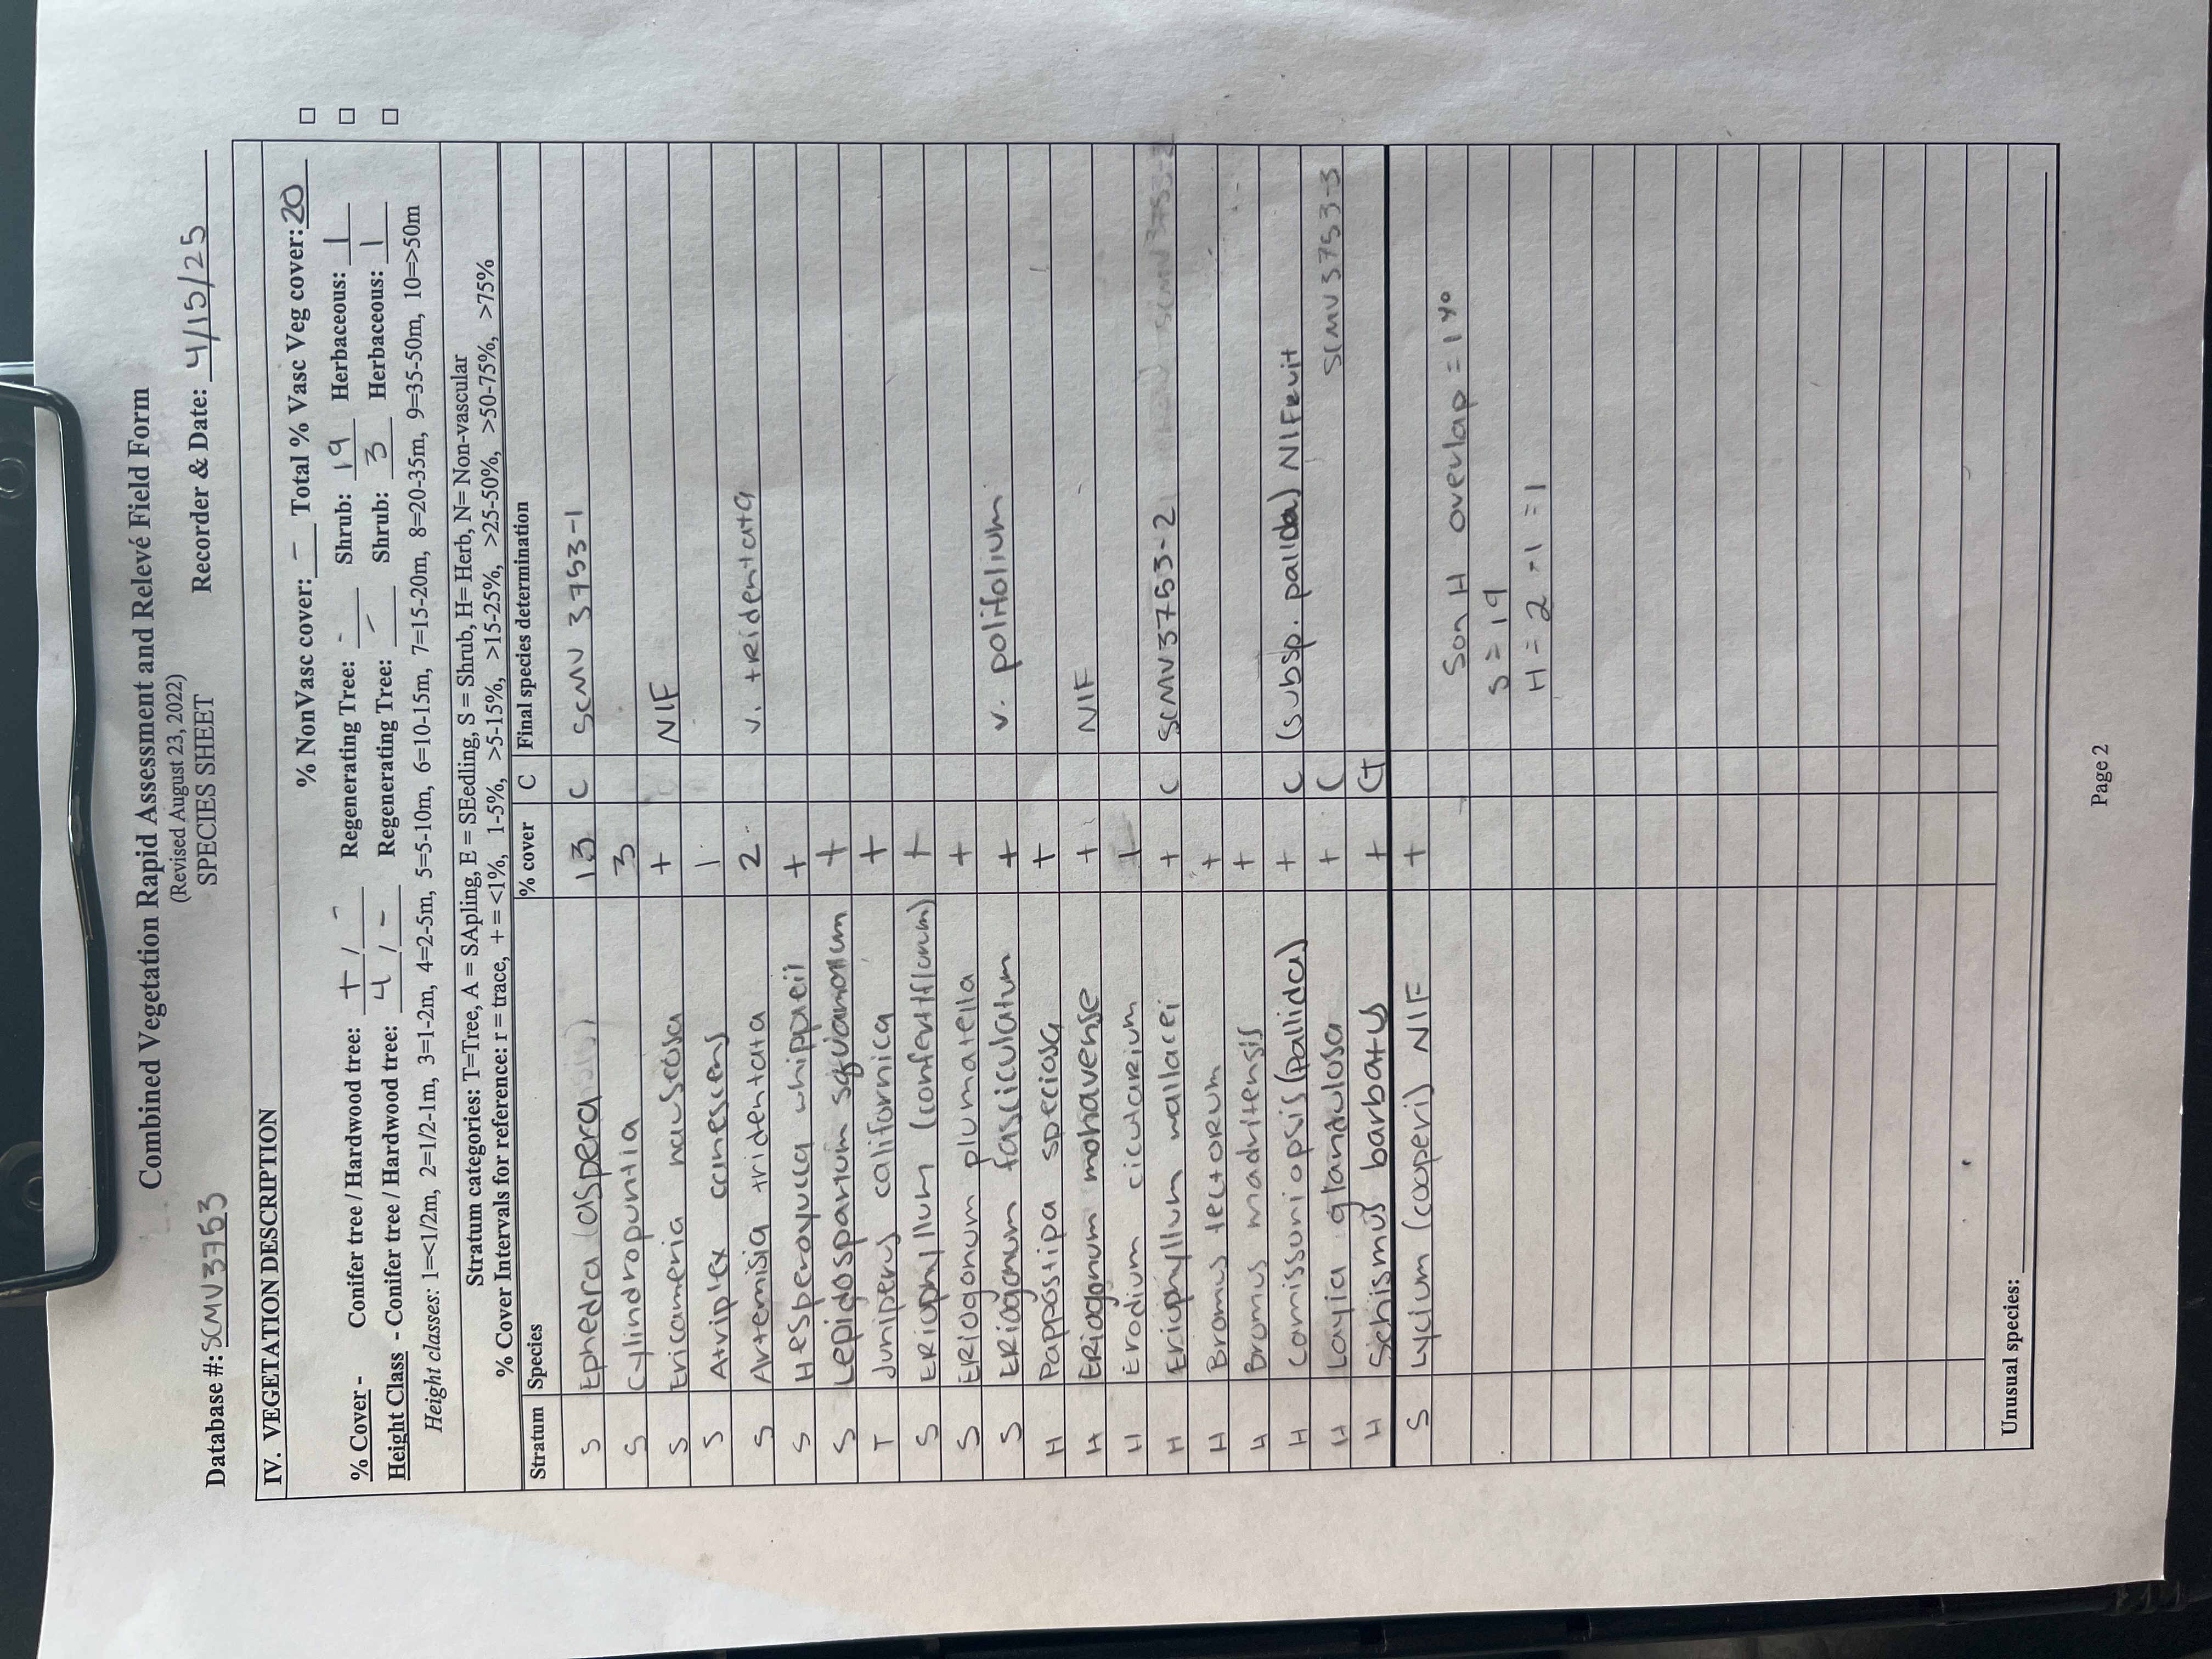 Combined Vegetation Rapid Assessment and Relevé Field Form
(Revised August 23, 2022)
SPECIES SHEET
Database #: SCMV3753 Recorder & Date: 4/15/25
IV. VEGETATION DESCRIPTION
% NonVasc cover: - Total % Vasc Veg cover: 20
% Cover - Conifer tree / Hardwood tree: + / - Regenerating Tree: - Shrub: 19 Herbaceous: 1
Height Class - Conifer tree / Hardwood tree: 4 / - Regenerating Tree: - Shrub: 3 Herbaceous: 1
Height classes: 1=<1/2m, 2=1/2-1m, 3=1-2m, 4=2-5m, 5=5-10m, 6=10-15m, 7=15-20m, 8=20-35m, 9=35-50m, 10=>50m
Stratum categories: T=Tree, A = SApling, E = SEedling, S = Shrub, H= Herb, N= Non-vascular
% Cover Intervals for reference: r = trace, + = <1%, 1-5%, >5-15%, >15-25%, >25-50%, >50-75%, >75%
Stratum Species % cover C Final species determination
S Ephedra (aspera) 13 C SCMV 3753-1
S Cylindropuntia 3
S Ericameria nauseosa + NIF
S Atriplex canescens 1
S Artemisia tridentata 2 v. tridentata
S Hesperoyucca whipplei +
S Lepidospartum squamatum +
T Juniperus californica +
S Eriophyllum (confertiflorum) +
S Eriogonum plumatella +
S Eriogonum fasciculatum + v. polifolium
H Pappostipa speciosa +
H Eriogonum mohavense + NIF
H Erodium cicutarium +
H Eriophyllum wallacei + C SCMV3753-2
H Bromus tectorum +
H Bromus madritensis +
H Camissoniopsis (pallida) + C (subsp. pallida) NIFruit
H Layia glandulosa + C SCMV3753-3
H Schismus barbatus +
S Lycium (cooperi) NIF +
S on H overlap = 1%
S = 19
H = 2 - 1 = 1
Unusual species:
Page 2